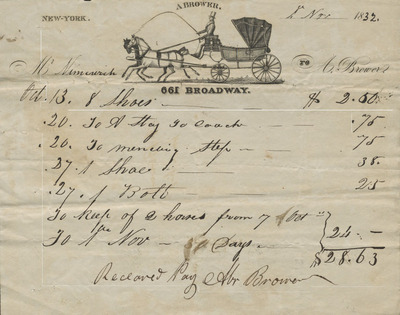 A BROWER.
NEW-YORK. 1 Nov 1832.
Mr To A. Brower
661 BROADWAY.
Oct. 13. 8 Shoes $ 2.50
.20. To A Stay To Coach .75
.20. To mending Step .75
.27 1 Shoe .38
.27. 1 Bolt 25
To Keep of 2 horses from 7 Oct
To 1 Nov Days. 24 —
$28.63
Recieved Pay Abr Brower